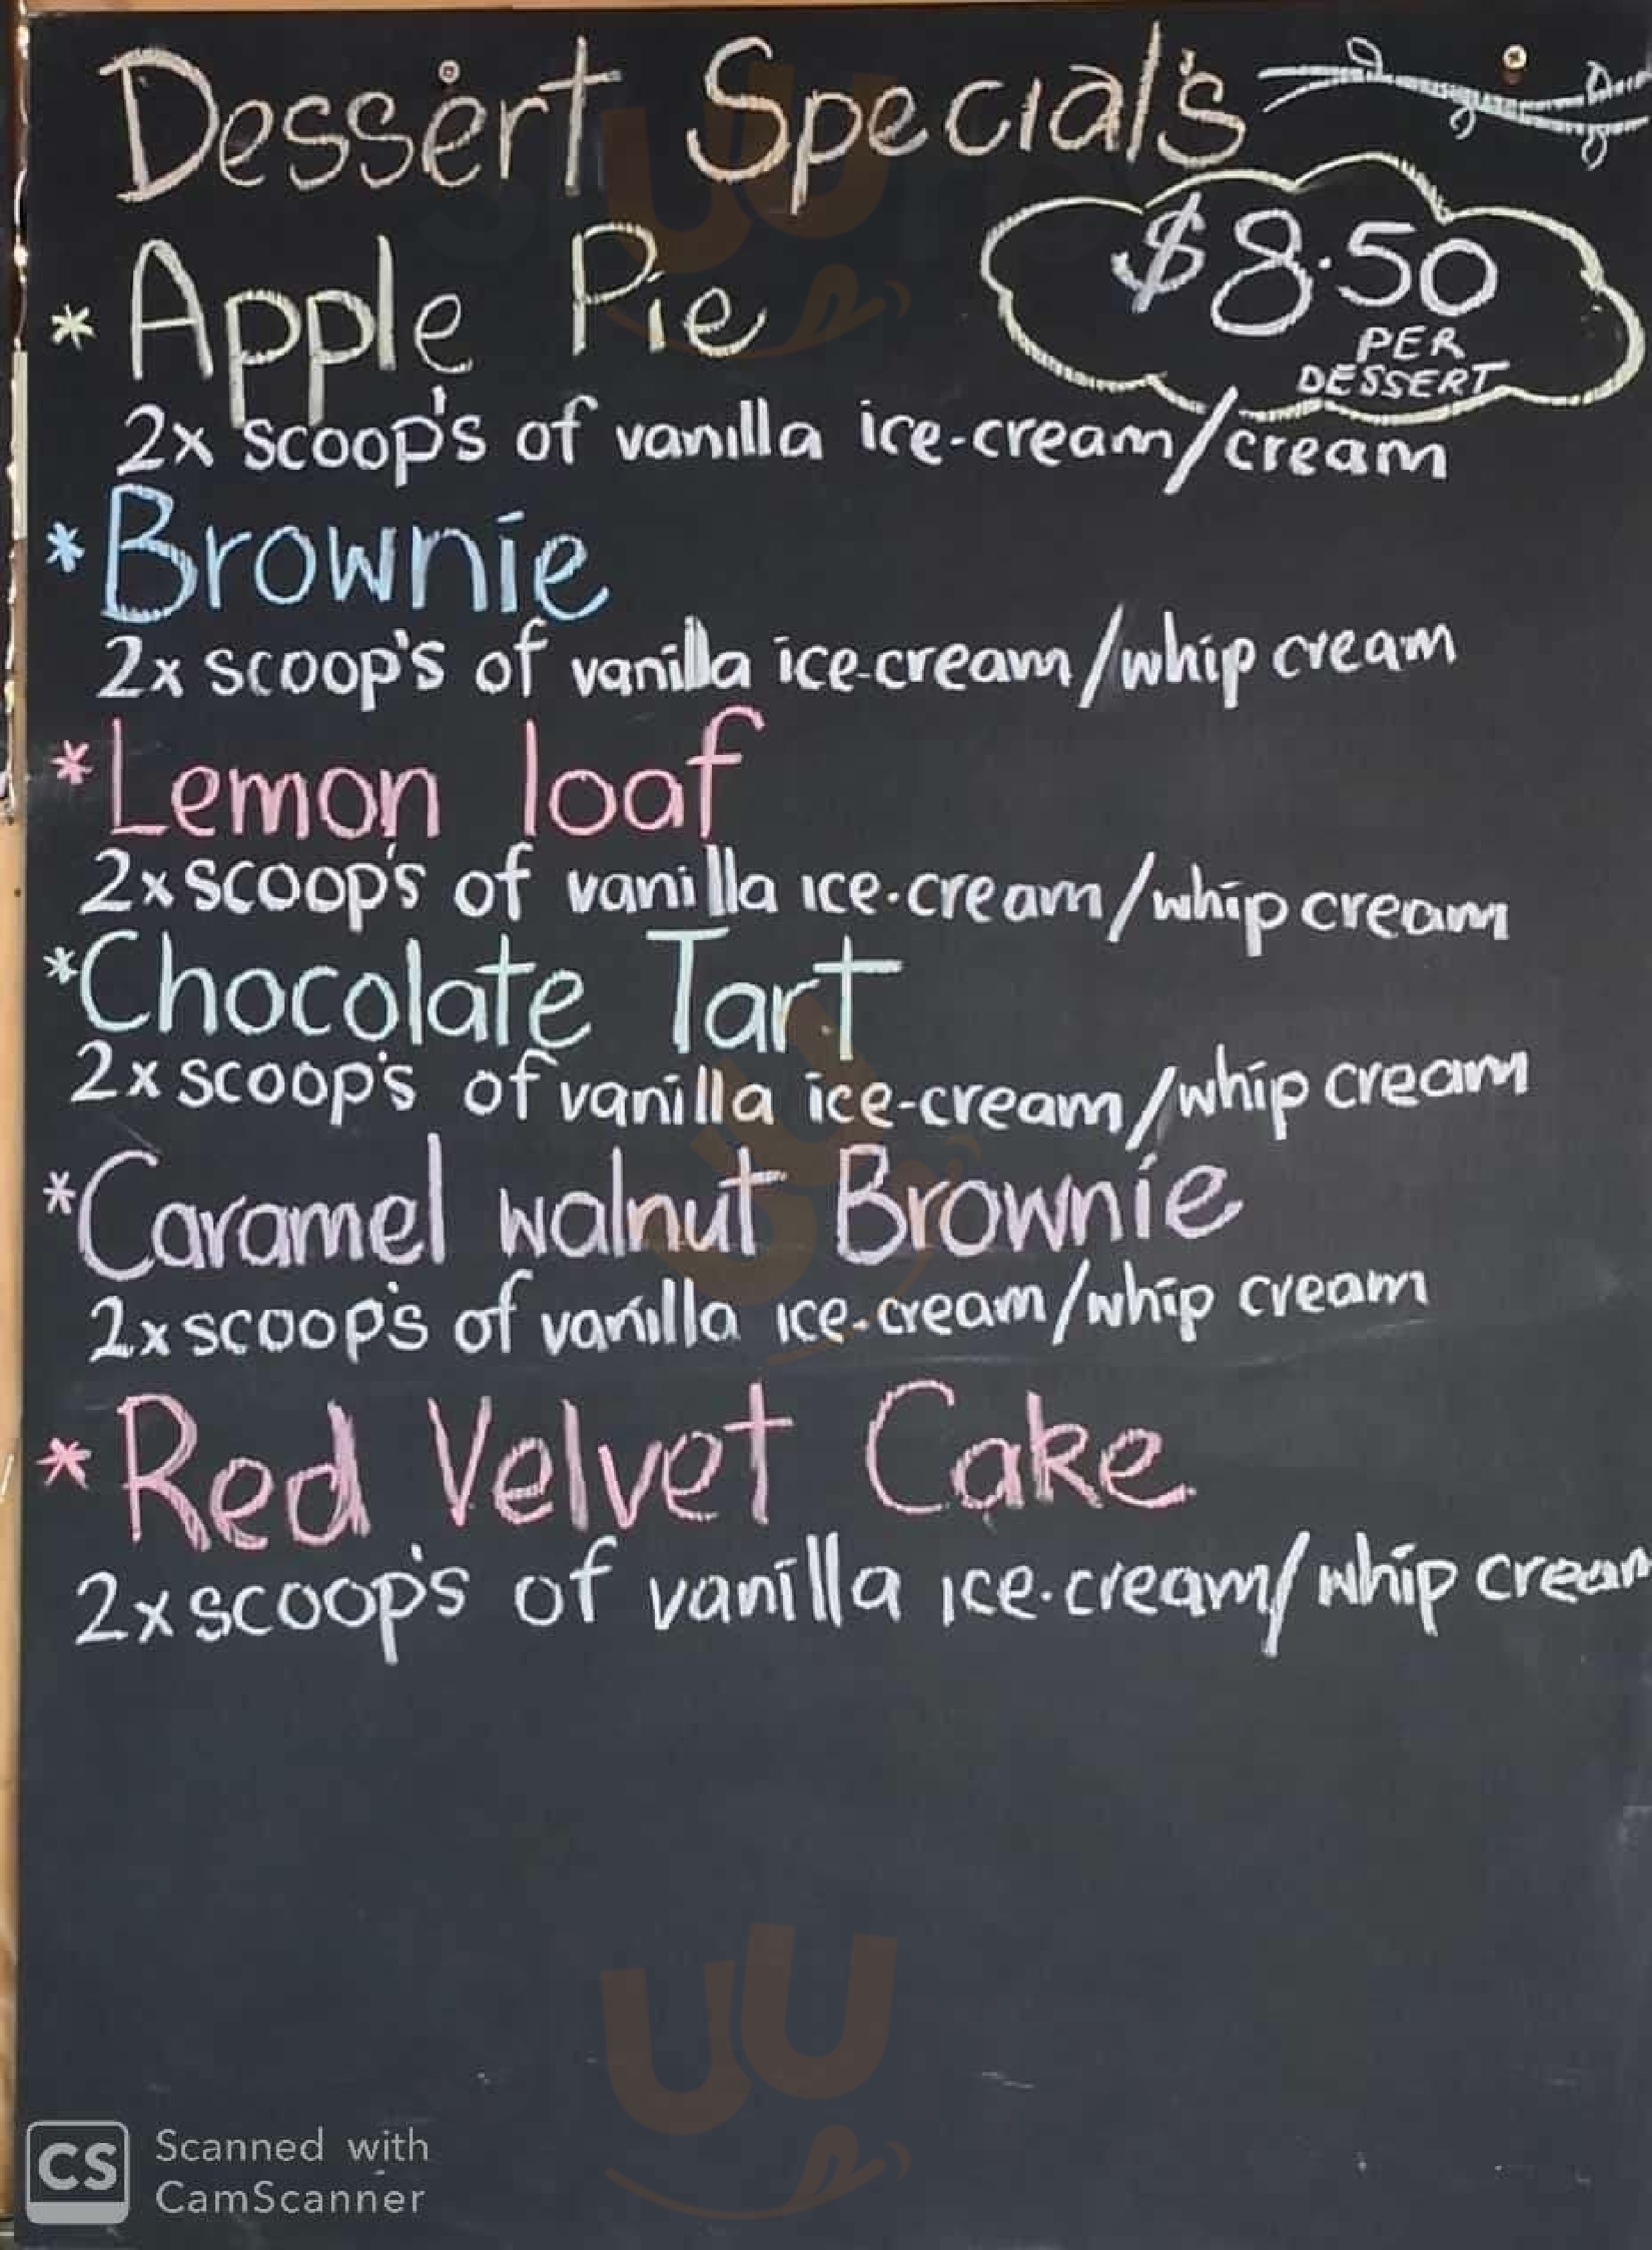 Dessert Special's
$8.50
PER
DESSERT
* Apple Pie
2x scoop's of vanilla ice-cream/cream
* Brownie
2x scoop's of vanilla ice-cream/whip cream
* Lemon loaf
2x scoop's of vanilla ice-cream/whip cream
* Chocolate Tart
2x scoop's of vanilla ice-cream/whip cream
* Caramel walnut Brownie
2x scoop's of vanilla ice-cream/whip cream
* Red Velvet Cake
2x scoop's of vanilla ice-cream/whip cream
CS
Scanned with
CamScanner